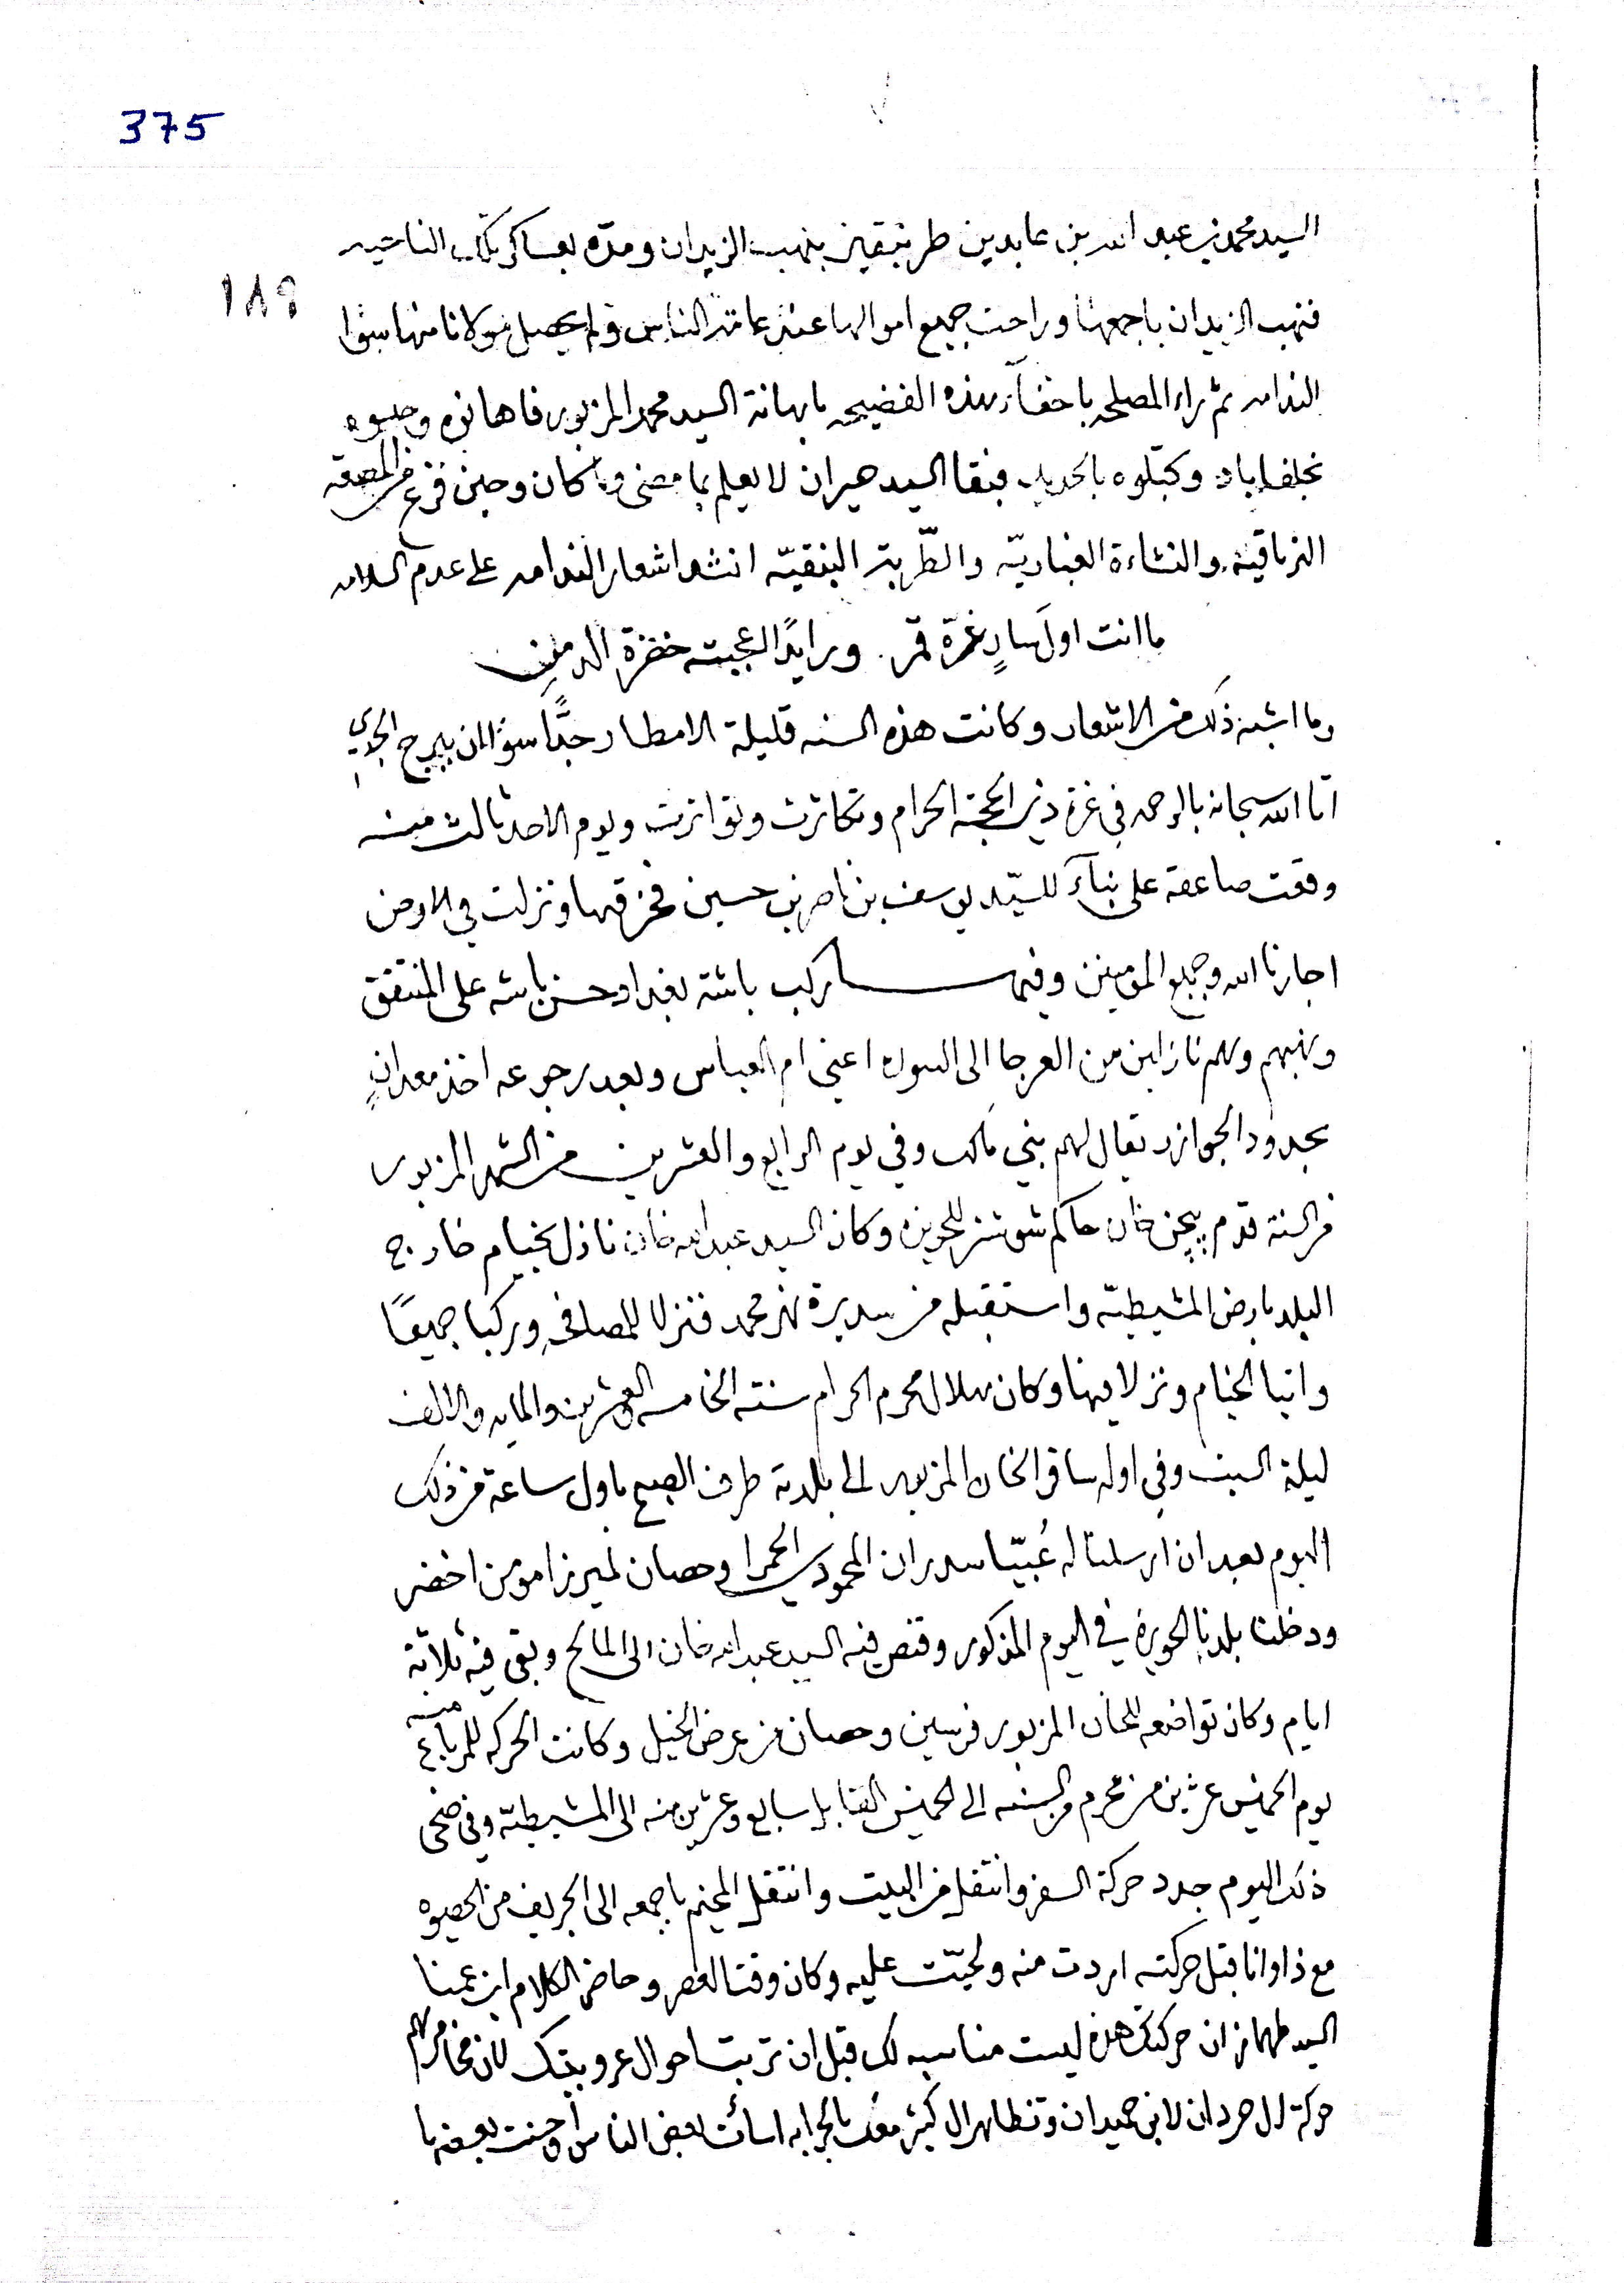 375
١٨٩
السيد محمد بن عبد الله بن عابدين بنهب الزيدان ومده بعساكر تلك الناحيه
فنهب الزيدان باجمعها وراحت جميع اموالها عند عامة الناس ولم يحصل مولانا منها سوا
الندامه ثم راء المصلحه باخفآء هذه الفضيحه باهانة السيد محمد المزبور فاهانوه وحبسوه
بخلفاباد وكبلوه بالحديد فبقا السيد حيران لا يعلم بما مضى وما كان وحين فرغ من
والنشاءة الغباريّه انشد اشعار الندامه على عدم السلامه
ما انت اول سارٍ غرّه قمر ورايدًا اعجبته خضرة الدمن
وما اشبه ذلك من الاشعار وكانت هذه السنه قليلة الامطار جدًّا سوا ان ببرج الجدي
اتا الله سبحانه بالرحمه في غرة ذي الحجة الحرام وتكاثرت وتواترت ويوم الاحد ثالث منه
وقعت صاعقه على بنآء للسيّد يوسف بن ناصر بن حسين فخرقها ونزلت في الارض
اجارنا الله وجميع المؤمنين وفيها ركب باشة بغداد حسن باشه على المنتفق
ونهبهم وهم نازلين من العرجا الى السوره اعني ام العباس وبعد رجوعه اخذ معدانٍ
بحدود الجوازر يقال لهم بني مالك وفي يوم الرابع والعشرين من الشهر المزبور
من السنة قدم بيجن خان حاكم شوشتر للحويزه وكان السيد عبد الله خان نازل بخيام خارج
البلد بارض المشيطيّه واستقبله من سديرة نهر محمد فنزلا للمصافحه وركبا جميعًا
واتيا الخيام ونزلا فيها وكان هلال محرم الحرام سنته الخامسه والعشرين والمايه والالف
ليلة السبت وفي اوله سافر الخان المزبور الى بلدته طرف الصبح باول ساعة من ذلك
اليوم بعد ان ارسلنا له عُبيّا سدران المحمودي الحمرا وحصان لميرزا مؤمن اخضر
ودخلنا بلدنا الحويزه في اليوم المذكور وقنص فيه السيد عبد الله خان الى المالح وبقى فيه ثلاثة
ايام وكان تواضعه للخان المزبور فرسين وحصان من عرض الخيل وكانت الحركه للمرباع منه
يوم الخميس عشرين من محرم والسنه الى الخميس القابل سابع وعشرين منه الى المشيطيّه وفي ضحى
ذلك اليوم جدد حركة السفر وانتقل من البيت وانتقل المخيم باجمعه الى الجريف من الحصيوه
مع ذا وانا قبل حركته اردت منه ولجيّت عليه وكان وقت العصر وحاضر الكلام ابن عمنا
السيد طهماز ان حركتك هذه ليست مناسبه لك قبل ان ترتب احوال عروبيتك لان
حركة ال حردان لابن حميدان وتظاهر ال كثير معك بالحرابه اسائت بعض الناس واحسنت بعضها